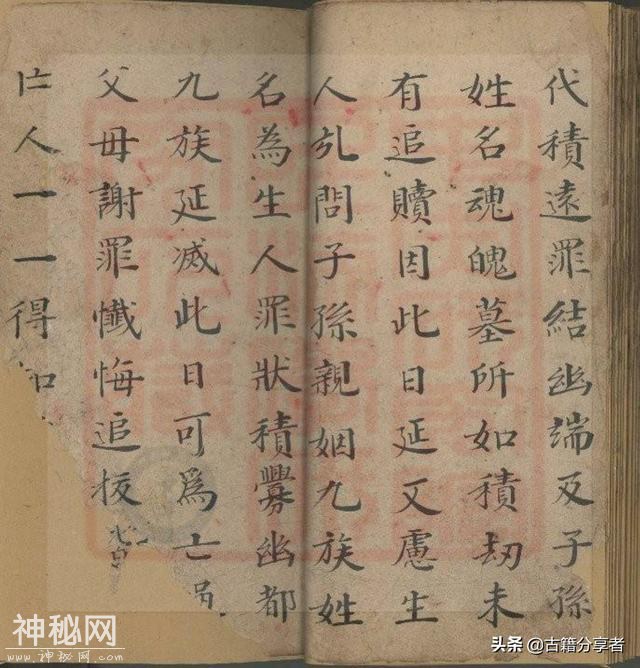 代積遠罪結幽端及子孫
姓名魂魄墓所如積劫未
有追贖因此日延又慮生
人乩問子孫親姻九族姓
名為生人罪狀積釁幽都
九族延滅此日可爲亡
父母謝罪懺悔追拔
亡人一一得
神秘网
WWW.神秘网.COM
头条 @古籍分享者